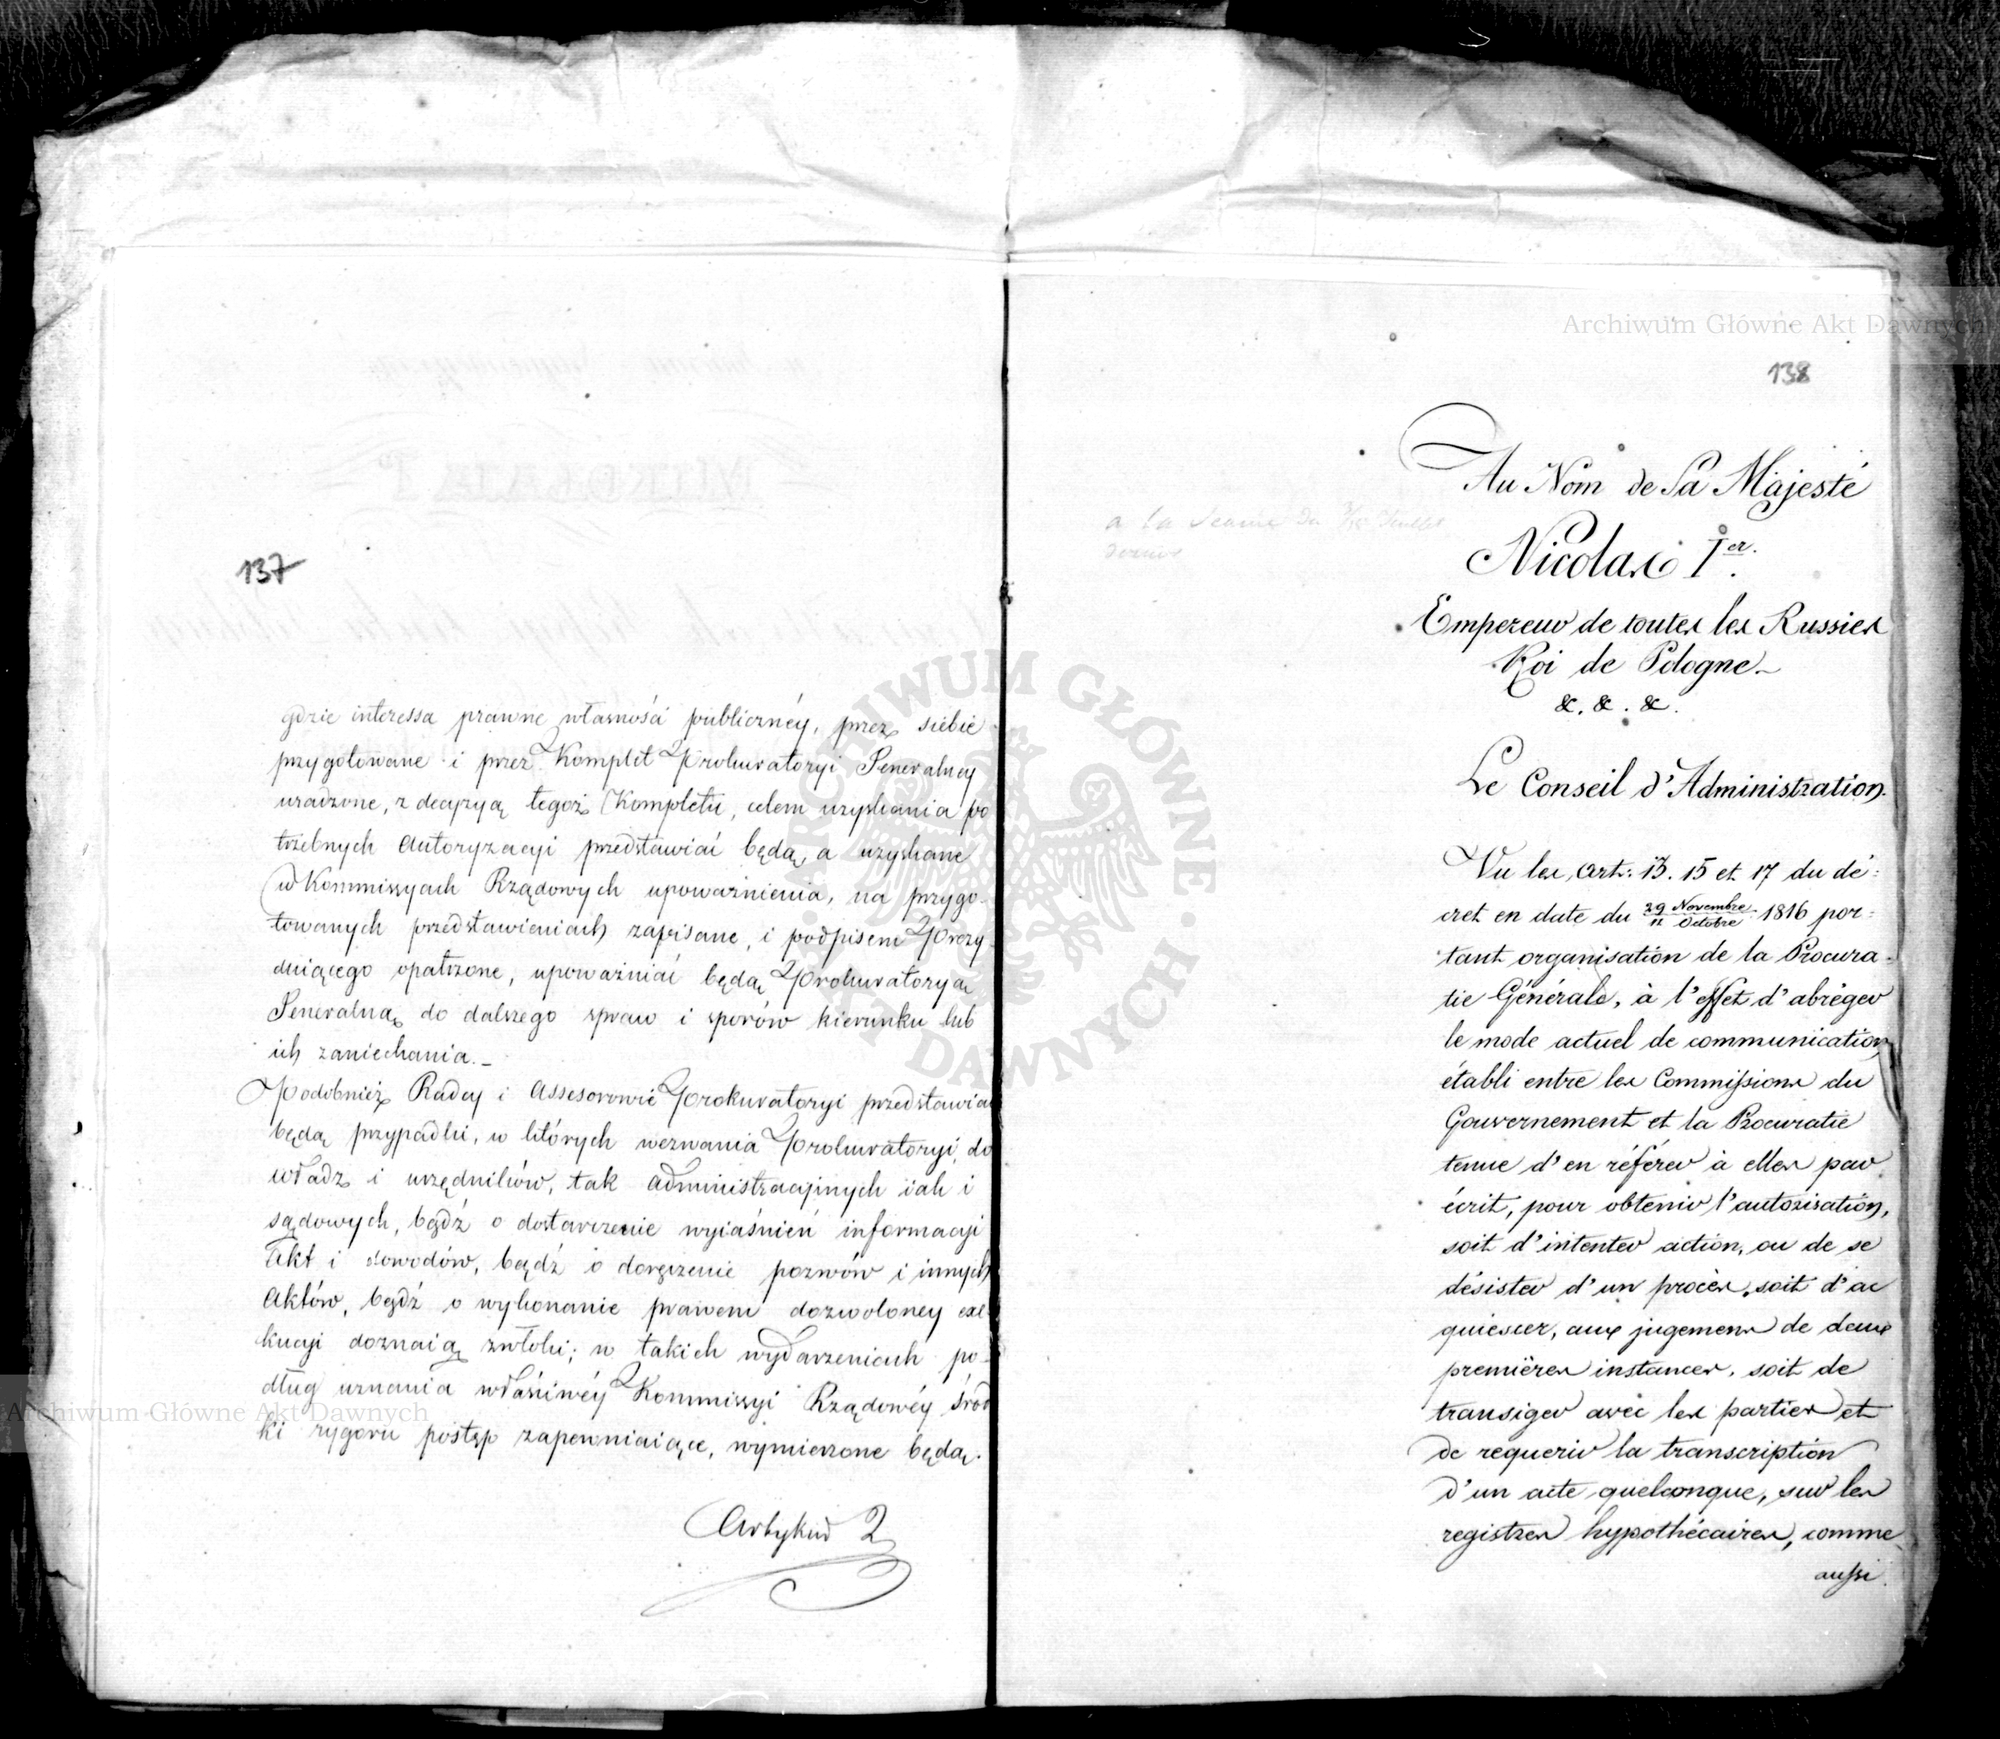 137
gdzie interessa prawne własności publicznéy, przez siebie
przygotowane i przez Komplet Prokuratoryi Generalney
uradzone, z decyzyą tegoż Kompletu, celem uzyskania po
trzebnych autoryzacyi przedstawiać będą, a uzyskane
w Kommissyach Rządowych upoważnienia, na przygo-
towanych przedstawieniach zapisane, i podpisem Prezy-
duiącego opatrzone, upoważniać będą Prokuratoryą
Generalną do dalszego spraw i sporów kierunku lub
ich zaniechania.-
Podobnież Radcy i Assesorowie Prokuratoryi przedstawiać
będą przypadki, w których wezwania Prokuratoryi, do
władz i urzędników, tak administracyinych iak i
sądowych, bądź o dostarczenie wyiaśnień informacyi
akt i dowodów, bądź o doręczenie pozwów i innych
Aktów, bądź o wykonanie prawem dozwoloney exe-
kucyi doznaią zwłoki; w takich wydarzeniach po-
dług uznania właściwéy Kommissyi Rządowéy środ
ki rygoru postęp zapewniaiące, wymierzone będą.
Artykuł 2
138
Au Nom de Sa Majesté
Nicolas Ier.
Empereur de toutes les Russies
Roi de Pologne
&. &. &.
Le Conseil d'Administration.
a la Séance du Juillet
dernier
Vu les Art: 13. 15 et 17 du dé:
cret en date du 29 Novembre / 11 Octobre 1816 por:
tant organisation de la Procura-
tie Générale, à l'effet d'abréger
le mode actuel de communication
établi entre les Commissions du
Gouvernement et la Procuratie
tenue d'en référer à elles par
écrit, pour obtenir l'autorisation,
soit d'intenter action, ou de se
désister d'un procès, soit d'ac
quiescer, aux jugemens de deux
premières instances, soit de
transiger avec les parties et
de requerir la transcription
d'un acte quelconque, sur les
registres hypothécaires, comme
aussi
Archiwum Główne Akt Dawnych
Archiwum Główne Akt Dawnych
ARCHIWUM GŁÓWNE AKT DAWNYCH